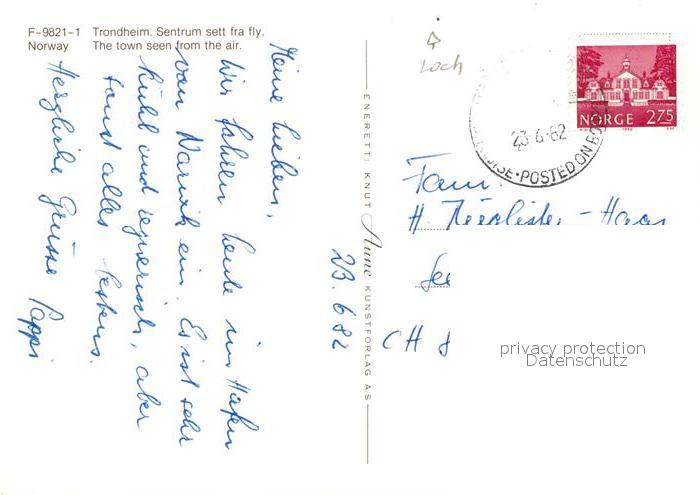 F-9821-1 Trondheim. Sentrum sett fra fly.
Norway The town seen from the air.
Meine Lieben,
Wir fahren heute im Hafen
von Narwik ein. Es ist sehr
kühl und regnerisch, aber
sonst alles bestens.
Herzliche Grüsse Pappi
23.6.82
ENERETT: KNUT Aune KUNSTFORLAG A/S
Loch
NORGE 275
23-6-82
POSTED ON BO
Fam.
H. - Haas
See
CH 8
privacy protection
Datenschutz